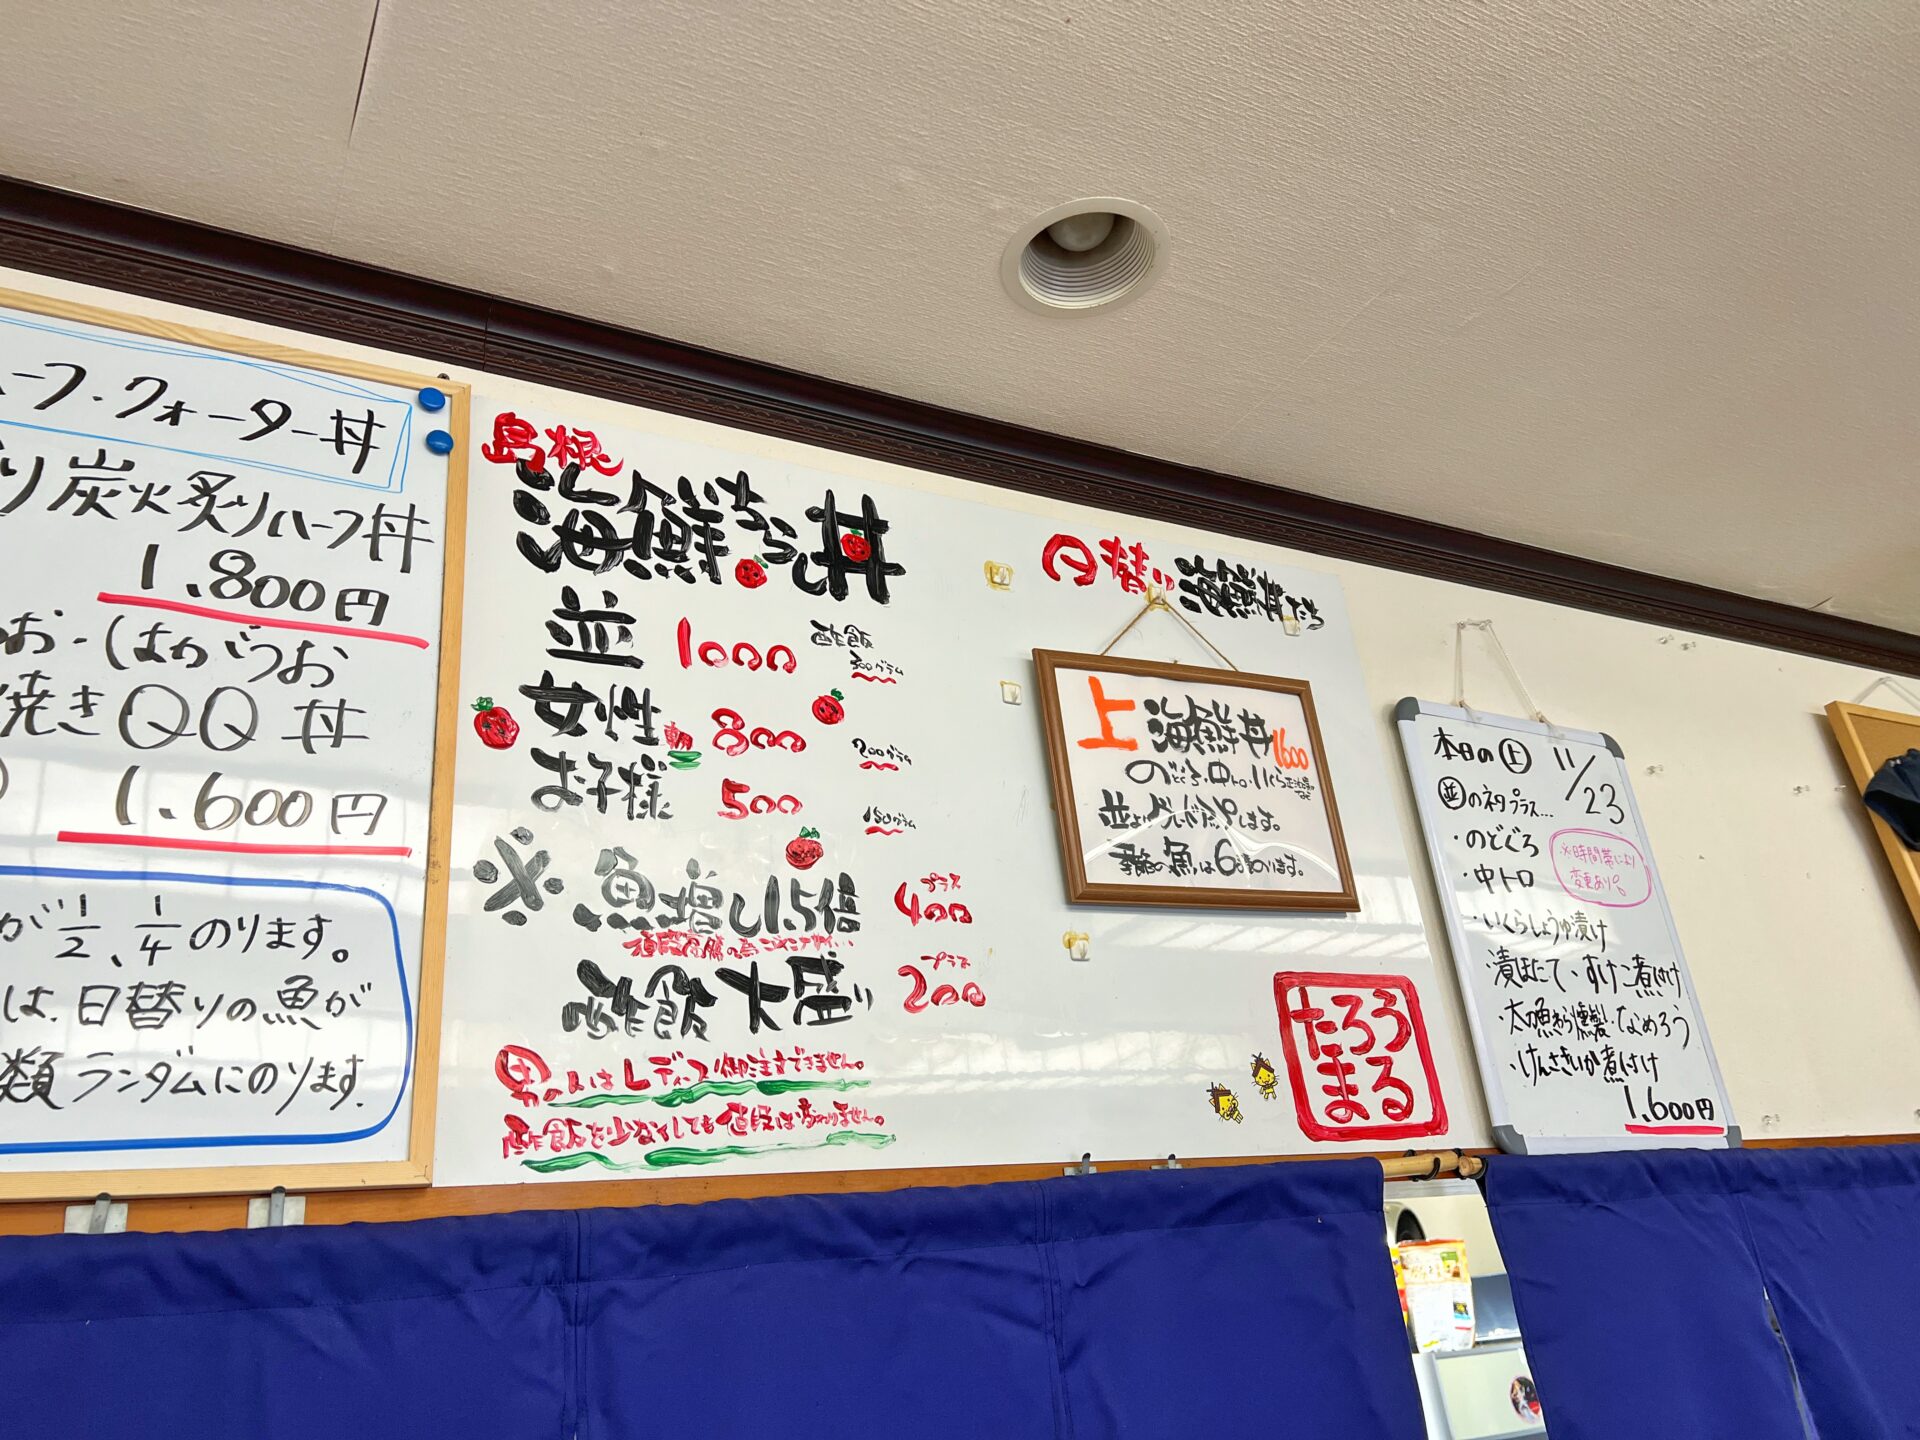 ーフ・クォーター丼
り炭火炙りハーフ丼
1,800円
お・しはがつお
焼きQQ丼
1.600円
が1/2、1/4のります。
は、日替りの魚が
類ランダムにのります.
島根
海鮮ちらし丼
並 1000 酢飯 300グラム
女性 800 200グラム
お子様 500 150グラム
※魚増し1.5倍 プラス 400
酢飯大盛り プラス 200
男の人はレディース御注文できません。
酢飯を少なくしても値段は変わりません。
日替り海鮮丼たち
上 海鮮丼 1600
のどぐろ・中トロ・いくら正油漬など
並よりグレードUPします。
季節の魚は6種のります。
たろう
まる
本日の上 11/23
並のネタプラス…
・のどぐろ
・中トロ
※時間帯により
変更あり。
・いくらしょうゆ漬け
・漬ほたて・すけこ煮付け
・太刀魚から燻製・なめろう
・けんさきいか煮付け
1,600円